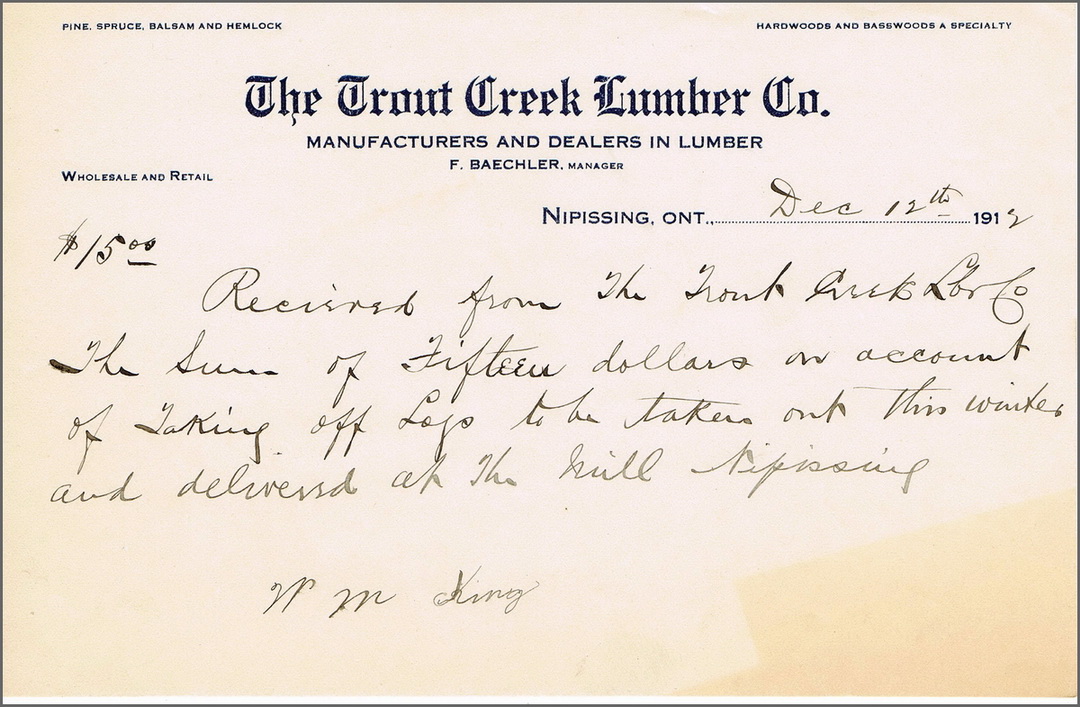 PINE, SPRUCE, BALSAM AND HEMLOCK
HARDWOODS AND BASSWOODS A SPECIALTY
The Trout Creek Lumber Co.
MANUFACTURERS AND DEALERS IN LUMBER
F. BAECHLER, MANAGER
WHOLESALE AND RETAIL
NIPISSING, ONT., Dec 12th 1912
$15 00
Recieved from The Trout Creek Lbr Co
The Sum of Fifteen dollars on account
of Taking off Logs to be taken out this winter
and delivered at The Mill Nipissing
W M King